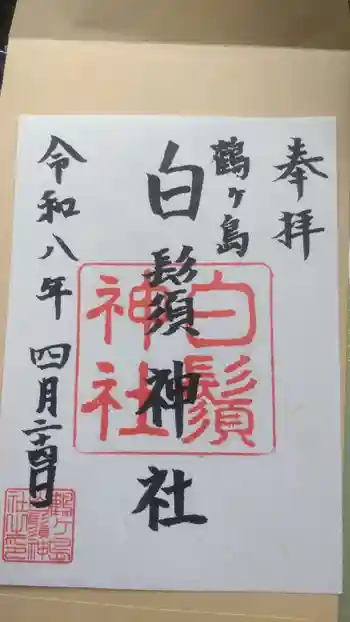 奉拝
鶴ヶ島
白鬚須神社
令和八年 四月二十四日
白鬚
神社
鶴ヶ島
白鬚神
社之印